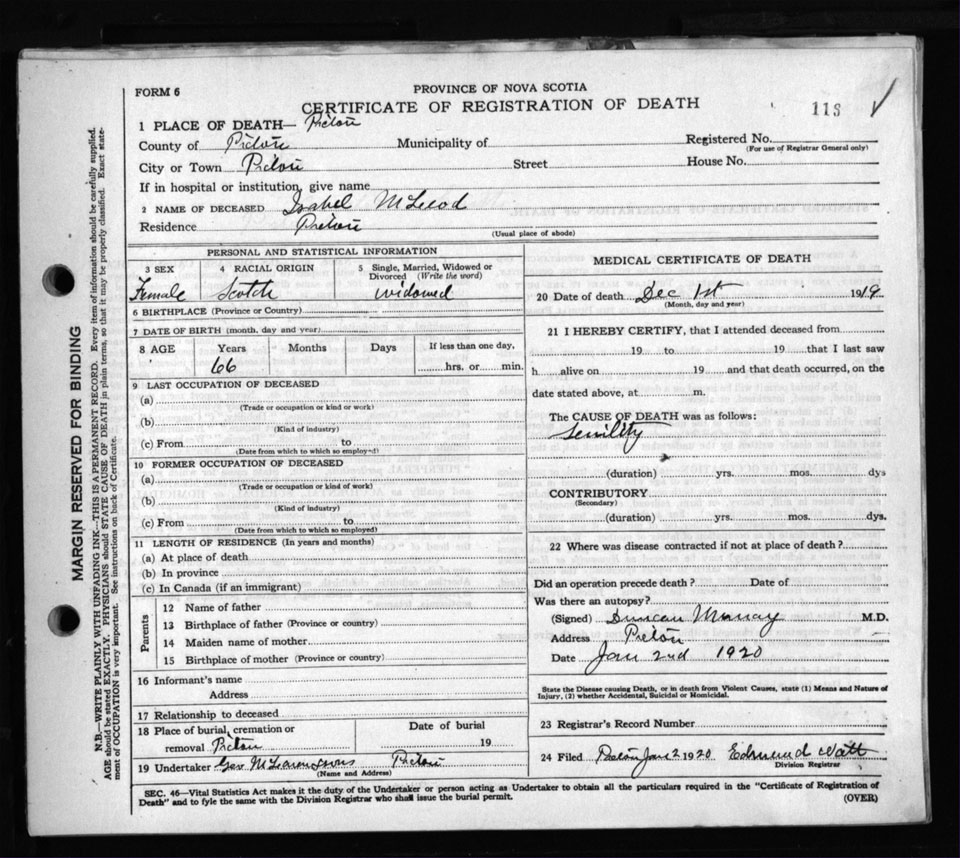 FORM 6
PROVINCE OF NOVA SCOTIA
CERTIFICATE OF REGISTRATION OF DEATH
118
1 PLACE OF DEATH— Pictou
County of Pictou Municipality of Registered No.
(For use of Registrar General only)
City or Town Pictou Street House No.
If in hospital or institution, give name
2 NAME OF DECEASED Isabel McLeod
Residence Pictou
(Usual place of abode)
PERSONAL AND STATISTICAL INFORMATION
3 SEX 4 RACIAL ORIGIN 5 Single, Married, Widowed or
Divorced (Write the word)
Female Scotch widowed
6 BIRTHPLACE (Province or Country)
7 DATE OF BIRTH (month, day and year)
8 AGE Years Months Days If less than one day,
66 hrs. or min.
9 LAST OCCUPATION OF DECEASED
(a)
(Trade or occupation or kind or work)
(b)
(Kind of industry)
(c) From to
(Date from which to which so employed)
10 FORMER OCCUPATION OF DECEASED
(a)
(Trade or occupation or kind of work)
(b)
(Kind of industry)
(c) From to
(Date from which to which so employed)
11 LENGTH OF RESIDENCE (In years and months)
(a) At place of death
(b) In province
(c) In Canada (if an immigrant)
Parents
12 Name of father
13 Birthplace of father (Province or country)
14 Maiden name of mother
15 Birthplace of mother (Province or country)
16 Informant's name
Address
17 Relationship to deceased
18 Place of burial, cremation or Date of burial
removal Pictou 19
19 Undertaker Geo Pictou
(Name and Address)
MEDICAL CERTIFICATE OF DEATH
20 Date of death Dec 1st 1919
(Month, day and year)
21 I HEREBY CERTIFY, that I attended deceased from
19 to 19 that I last saw
h alive on 19 and that death occurred, on the
date stated above, at m.
The CAUSE OF DEATH was as follows:
Senility
(duration) yrs. mos. dys
CONTRIBUTORY
(Secondary)
(duration) yrs. mos. dys.
22 Where was disease contracted if not at place of death?
Did an operation precede death? Date of
Was there an autopsy?
(Signed) Duncan Murray M.D.
Address Pictou
Date Jan 2nd 1920
State the Disease causing Death, or in death from Violent Causes, state (1) Means and Nature of
Injury, (2) whether Accidental, Suicidal or Homicidal.
23 Registrar's Record Number
24 Filed Pictou Jan 2 1920 Edmund Watt
Division Registrar
SEC. 46—Vital Statistics Act makes it the duty of the Undertaker or person acting as Undertaker to obtain all the particulars required in the "Certificate of Registration of
Death" and to fyle the same with the Division Registrar who shall issue the burial permit.
(OVER)
MARGIN RESERVED FOR BINDING
N.B.—WRITE PLAINLY WITH UNFADING INK—THIS IS A PERMANENT RECORD. Every item of information should be carefully supplied.
AGE should be stated EXACTLY. PHYSICIANS should STATE CAUSE OF DEATH in plain terms, so that it may be properly classified. Exact state-
ment of OCCUPATION is very important. See instructions on back of Certificate.